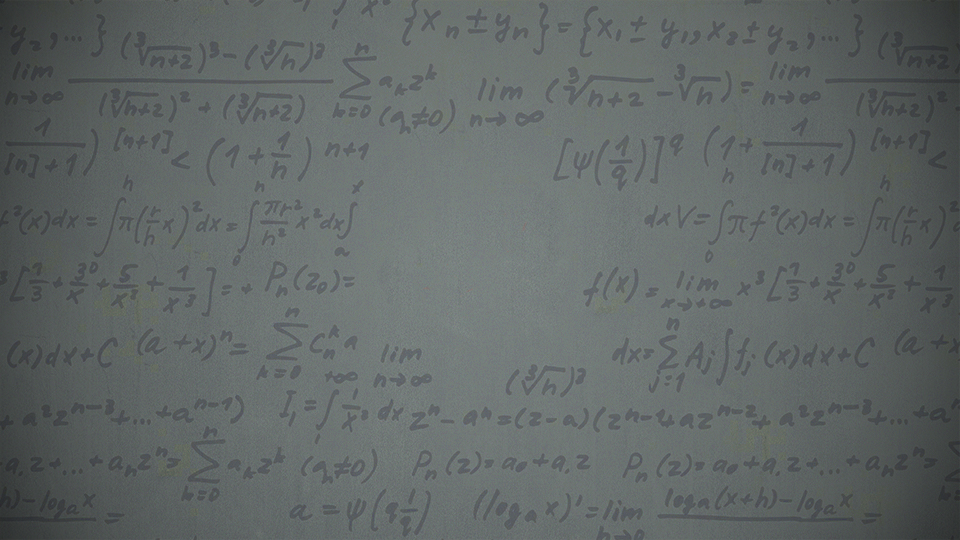 {x_n ± y_n} = {x_1 ± y_1, x_2 ± y_2, ...}
y_2, ... }
lim n→∞ ((∛(n+2))^3 − (∛n)^3) / ((∛(n+2))^2 + (∛(n+2))) ∑ n k=0 a_k z^k (a_n≠0) lim n→∞ (∛(n+2) − ∛n) = lim n→∞ (∛(n+2)) / (∛(n+2))^2
1/([n]+1)) [n+1] < (1 + 1/n) n+1 [ψ(1/q)]^q (1 + 1/([n]+1)) [n+1] <
f^2(x)dx = ∫ π(r/h x)^2 dx = ∫ πr^2/h^2 x^2 dx ∫ dx V = ∫ π f^2(x)dx = ∫ π(r/h x)^2
[1/3 + 30/x + 5/x^2 + 1/x^3] = + P_n(z_0) = f(x) = lim x→+∞ x^3 [1/3 + 30/x + 5/x^2 + 1/x^3
(x)dx + C (a + x)^n = ∑ n k=0 C_n^k a lim n→∞ dx = ∑ n j=1 A_j ∫ f_j (x)dx + C (a + x
(∛n)^3
+ a^2 z^n-3 + ... + a^n-1) I_1 = ∫ +∞ 1 1/x^2 dx z^n − a^n = (z − a)(z^n-1 + az^n-2 + a^2 z^n-3 + ... + a
a_1 z + ... + a_n z^n = ∑ n k=0 a_k z^k (a_n≠0) P_n(z) = a_0 + a_1 z P_n(z) = a_0 + a_1 z + ... + a_n z^n =
h) − log_a x = a = ψ(q 1/q) (log_a x)' = lim h→0 (log_a(x+h) − log_a x) =